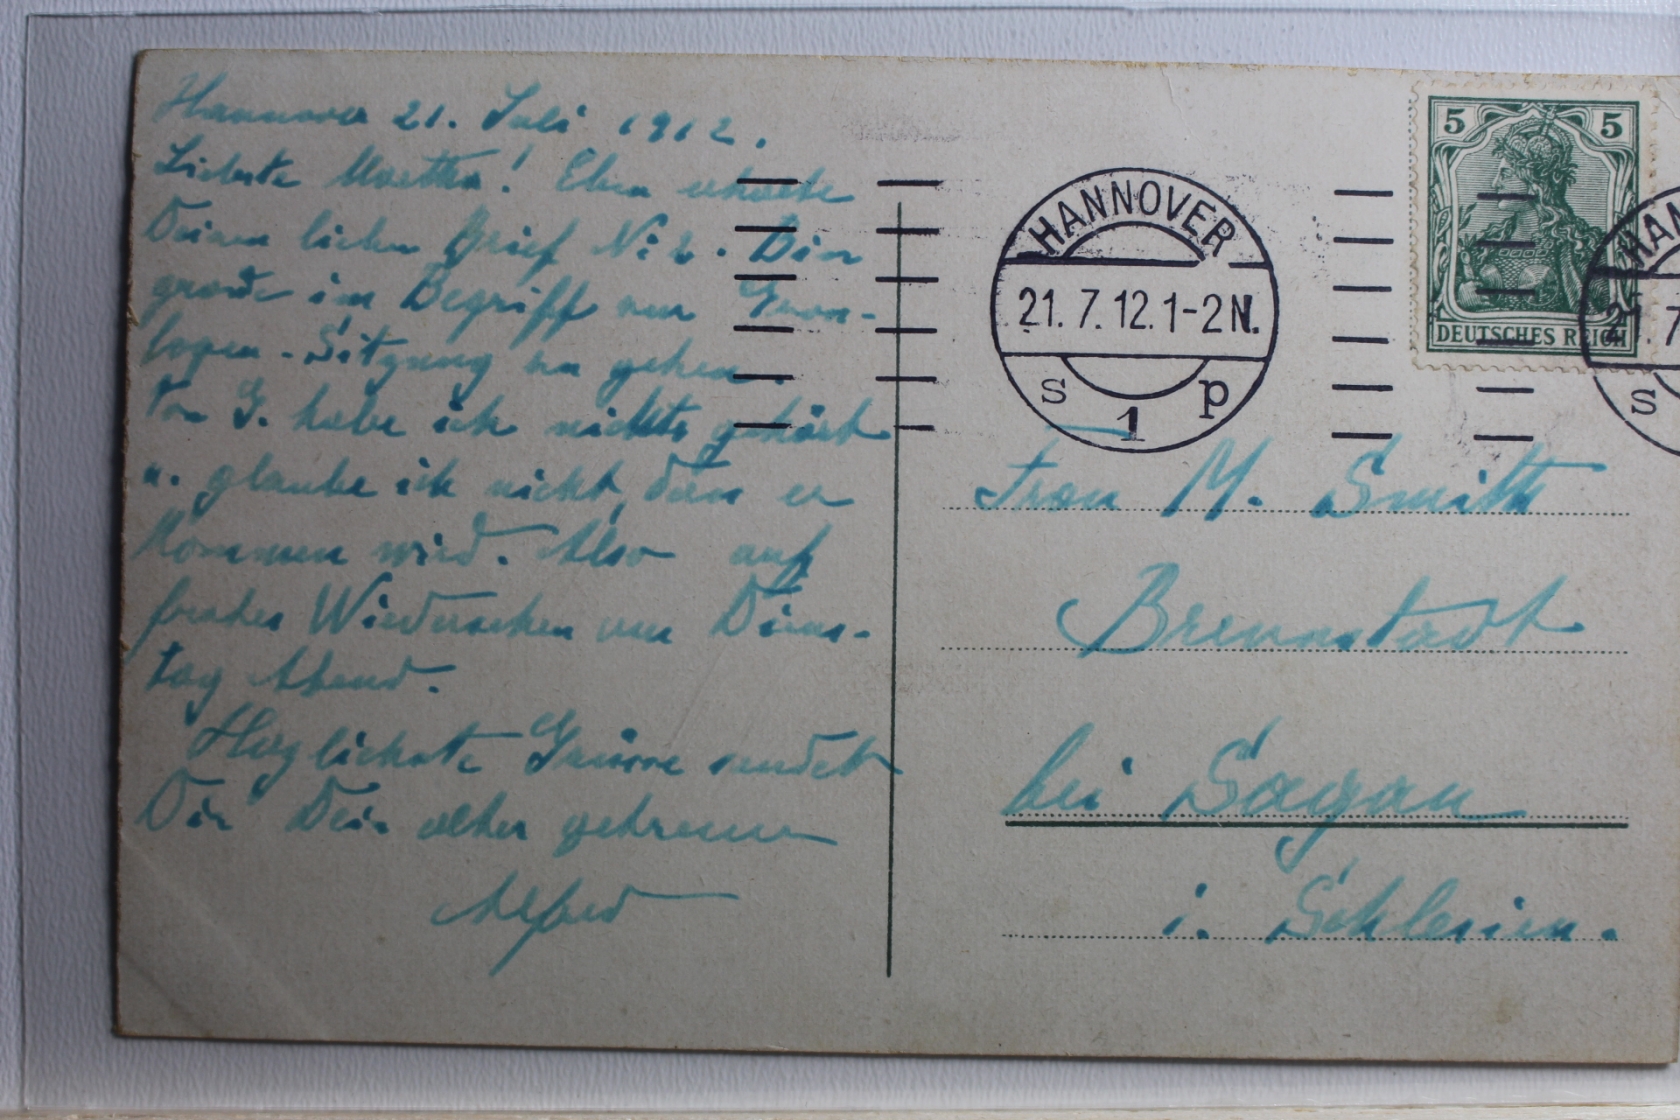 Hannover 21. Juli 1912.
Liebste Martha! Eben erhalte
Deinen lieben Brief No 2. Bin
grade im Begriff zur
logen-Sitzung zu gehen.
Von G. habe ich nichts gehört
u. glaube ich nicht, dass er
kommen wird. Also auf
frohes Wiedersehen am Diens-
tag Abend.
Herzlichste Grüsse sendet
Dir Dein alter getreuer
Alfred
HANNOVER
21. 7. 12. 1-2 N.
s 1 p
5 5
DEUTSCHES REICH
HAN
21. 7
s
Frau M. Smith
Brennstadt
bei Sagan
i. Schlesien.